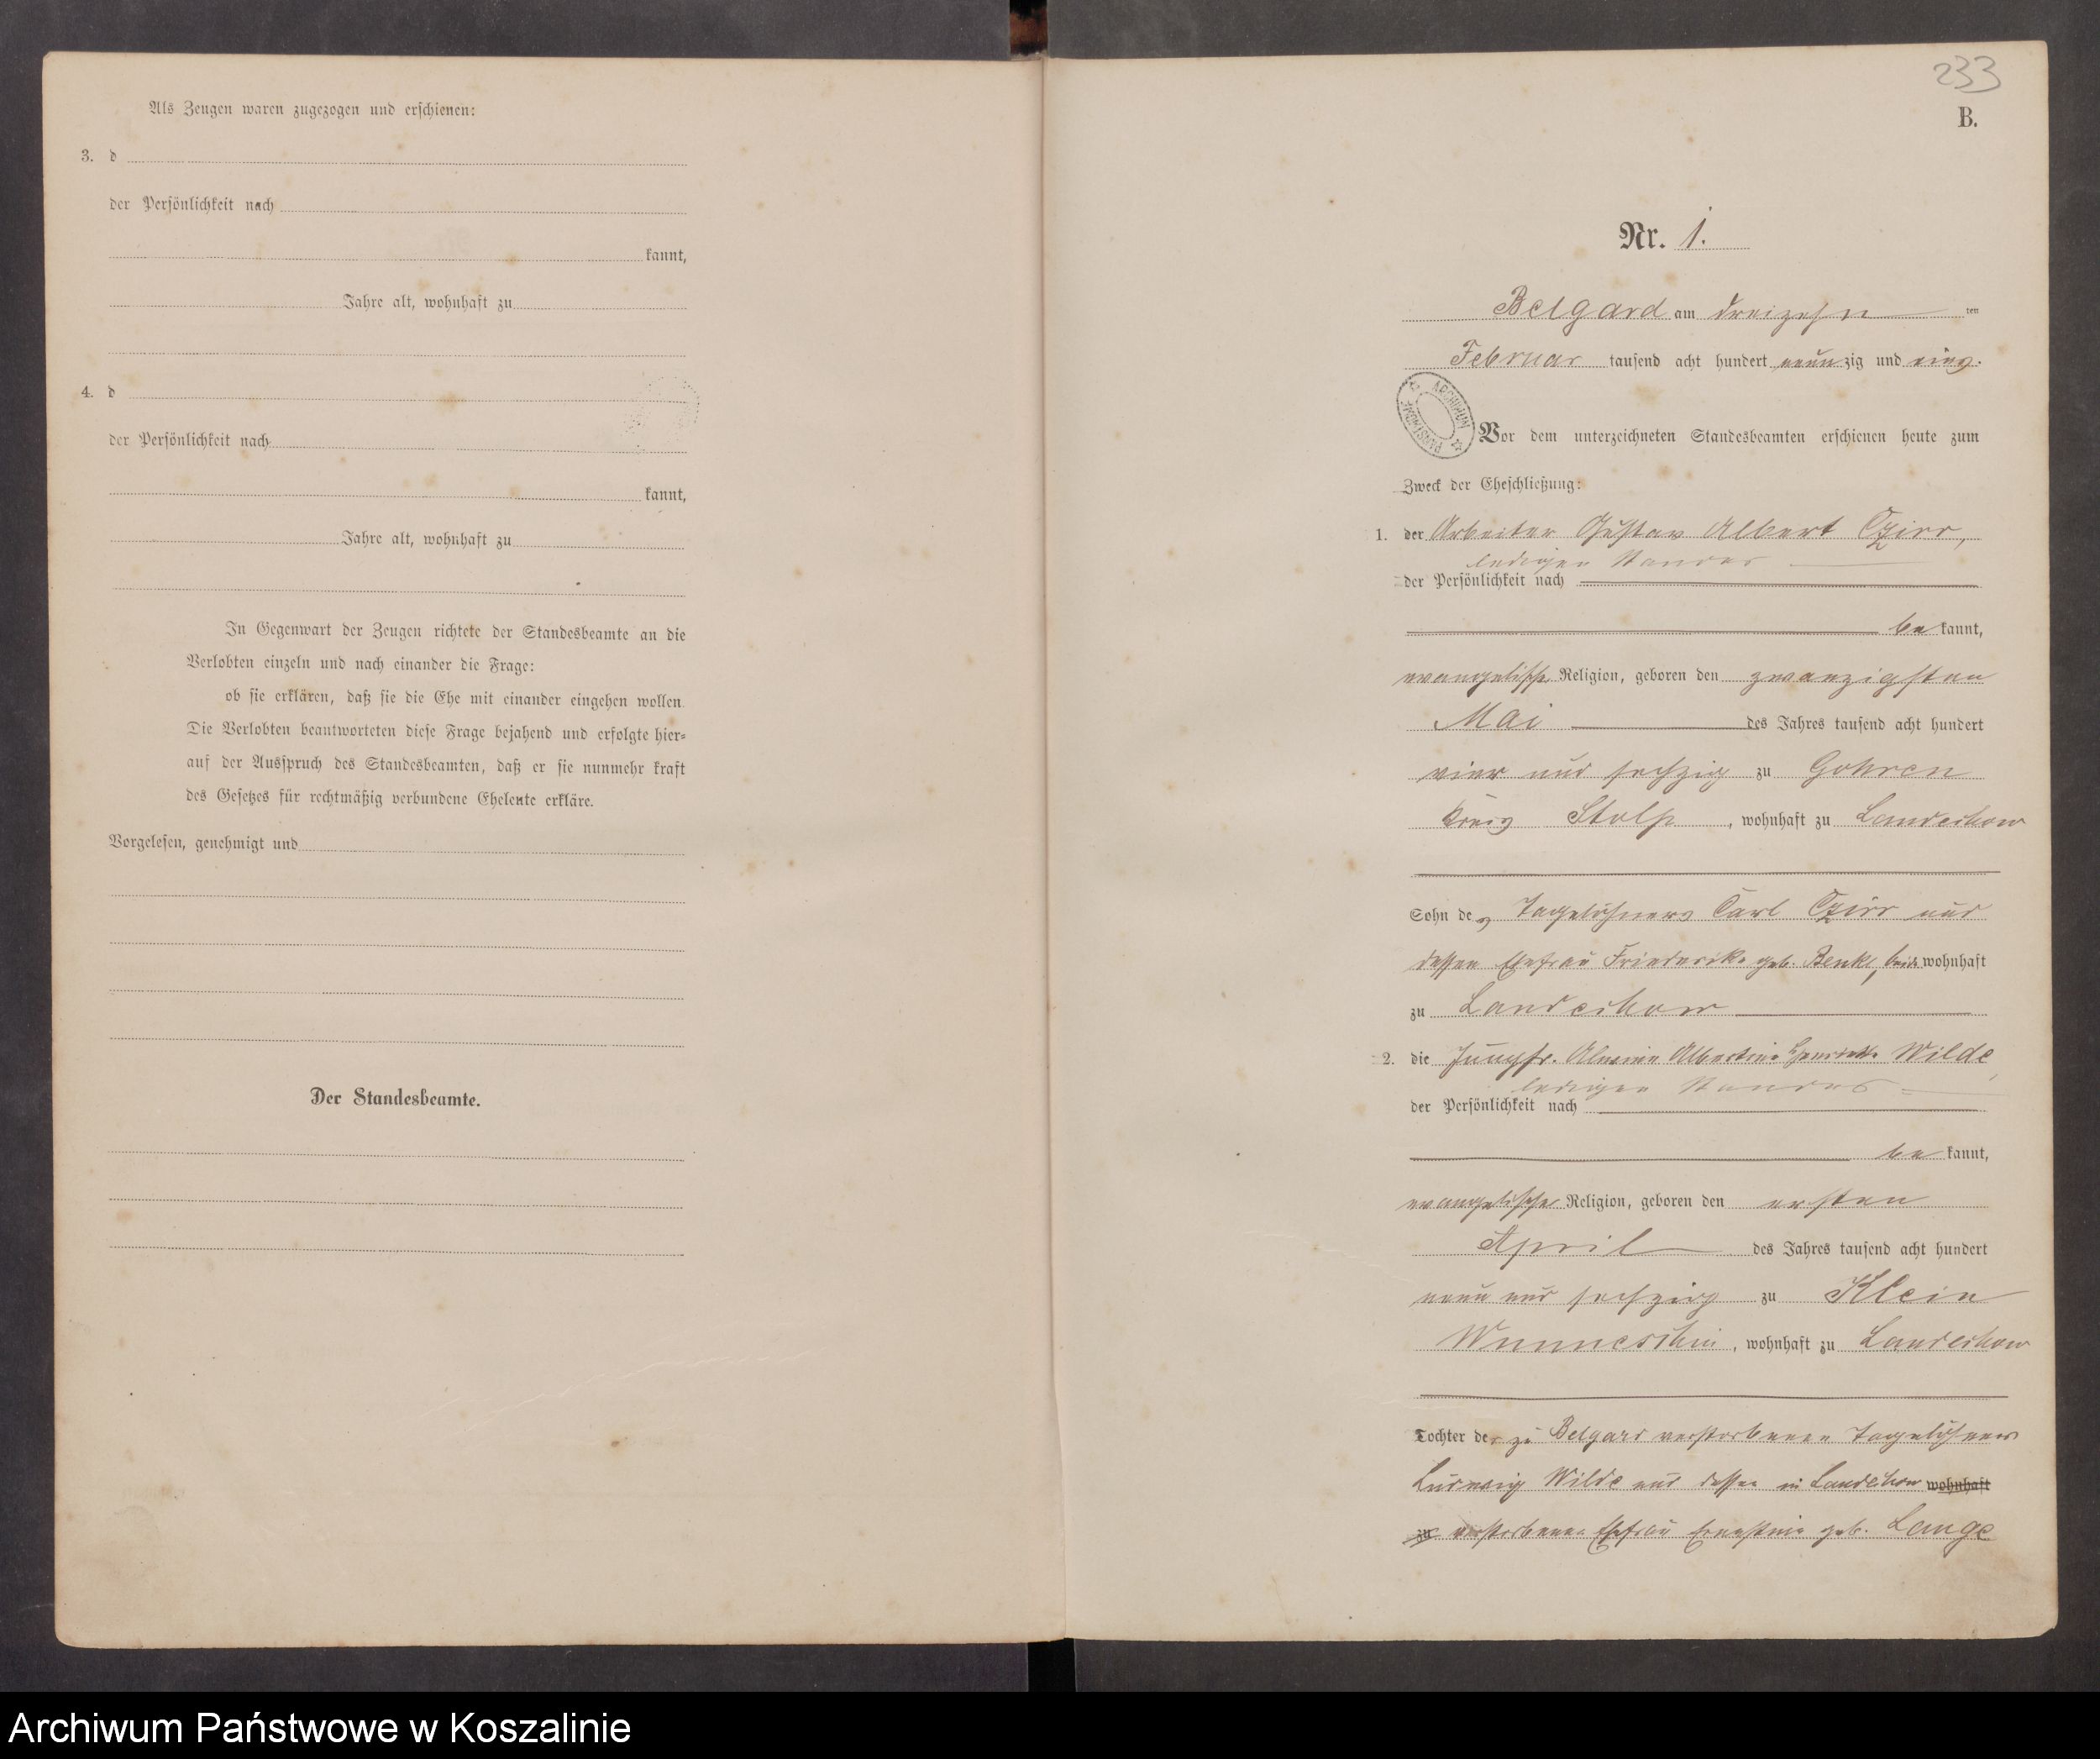 Als Zeugen waren zugezogen und erschienen:
3. d
der Persönlichkeit nach
kannt,
Jahre alt, wohnhaft zu
4. d
der Persönlichkeit nach
kannt,
Jahre alt, wohnhaft zu
In Gegenwart der Zeugen richtete der Standesbeamte an die
Verlobten einzeln und nach einander die Frage:
ob sie erklären, daß sie die Ehe mit einander eingehen wollen.
Die Verlobten beantworteten diese Frage bejahend und erfolgte hier-
auf der Ausspruch des Standesbeamten, daß er sie nunmehr kraft
des Gesetzes für rechtmäßig verbundene Eheleute erkläre.
Vorgelesen, genehmigt und
Der Standesbeamte.
233
B.
Nr. 1.
Belgard am dreizehn ten
Februar tausend acht hundert neunzig und eins.
ARCHIWUM PAŃSTWOWE
Vor dem unterzeichneten Standesbeamten erschienen heute zum
Zweck der Eheschließung:
1. der Arbeiter Gustav Albert Czirr,
ledigen Standes
der Persönlichkeit nach
be kannt,
evangelischer Religion, geboren den zwanzigsten
Mai des Jahres tausend acht hundert
vier und sechzig zu Gohren
Kreis Stolp, wohnhaft zu Landechow
Sohn des Tagelöhners Carl Czirr und
dessen Ehefrau Friederike geb. Benke, beide wohnhaft
zu Landechow
2. die Jungfr. Alwine Albertine Henriette Wilde,
ledigen Standes
der Persönlichkeit nach
be kannt,
evangelischer Religion, geboren den ersten
April des Jahres tausend acht hundert
neun und sechzig zu Klein
Wunneschin, wohnhaft zu Landechow
Tochter des zu Belgard verstorbenen Tagelöhners
Ludwig Wilde und dessen in Landechow wohnhaft
zu verstorbenen Ehefrau Ernestine geb. Lange
Archiwum Państwowe w Koszalinie